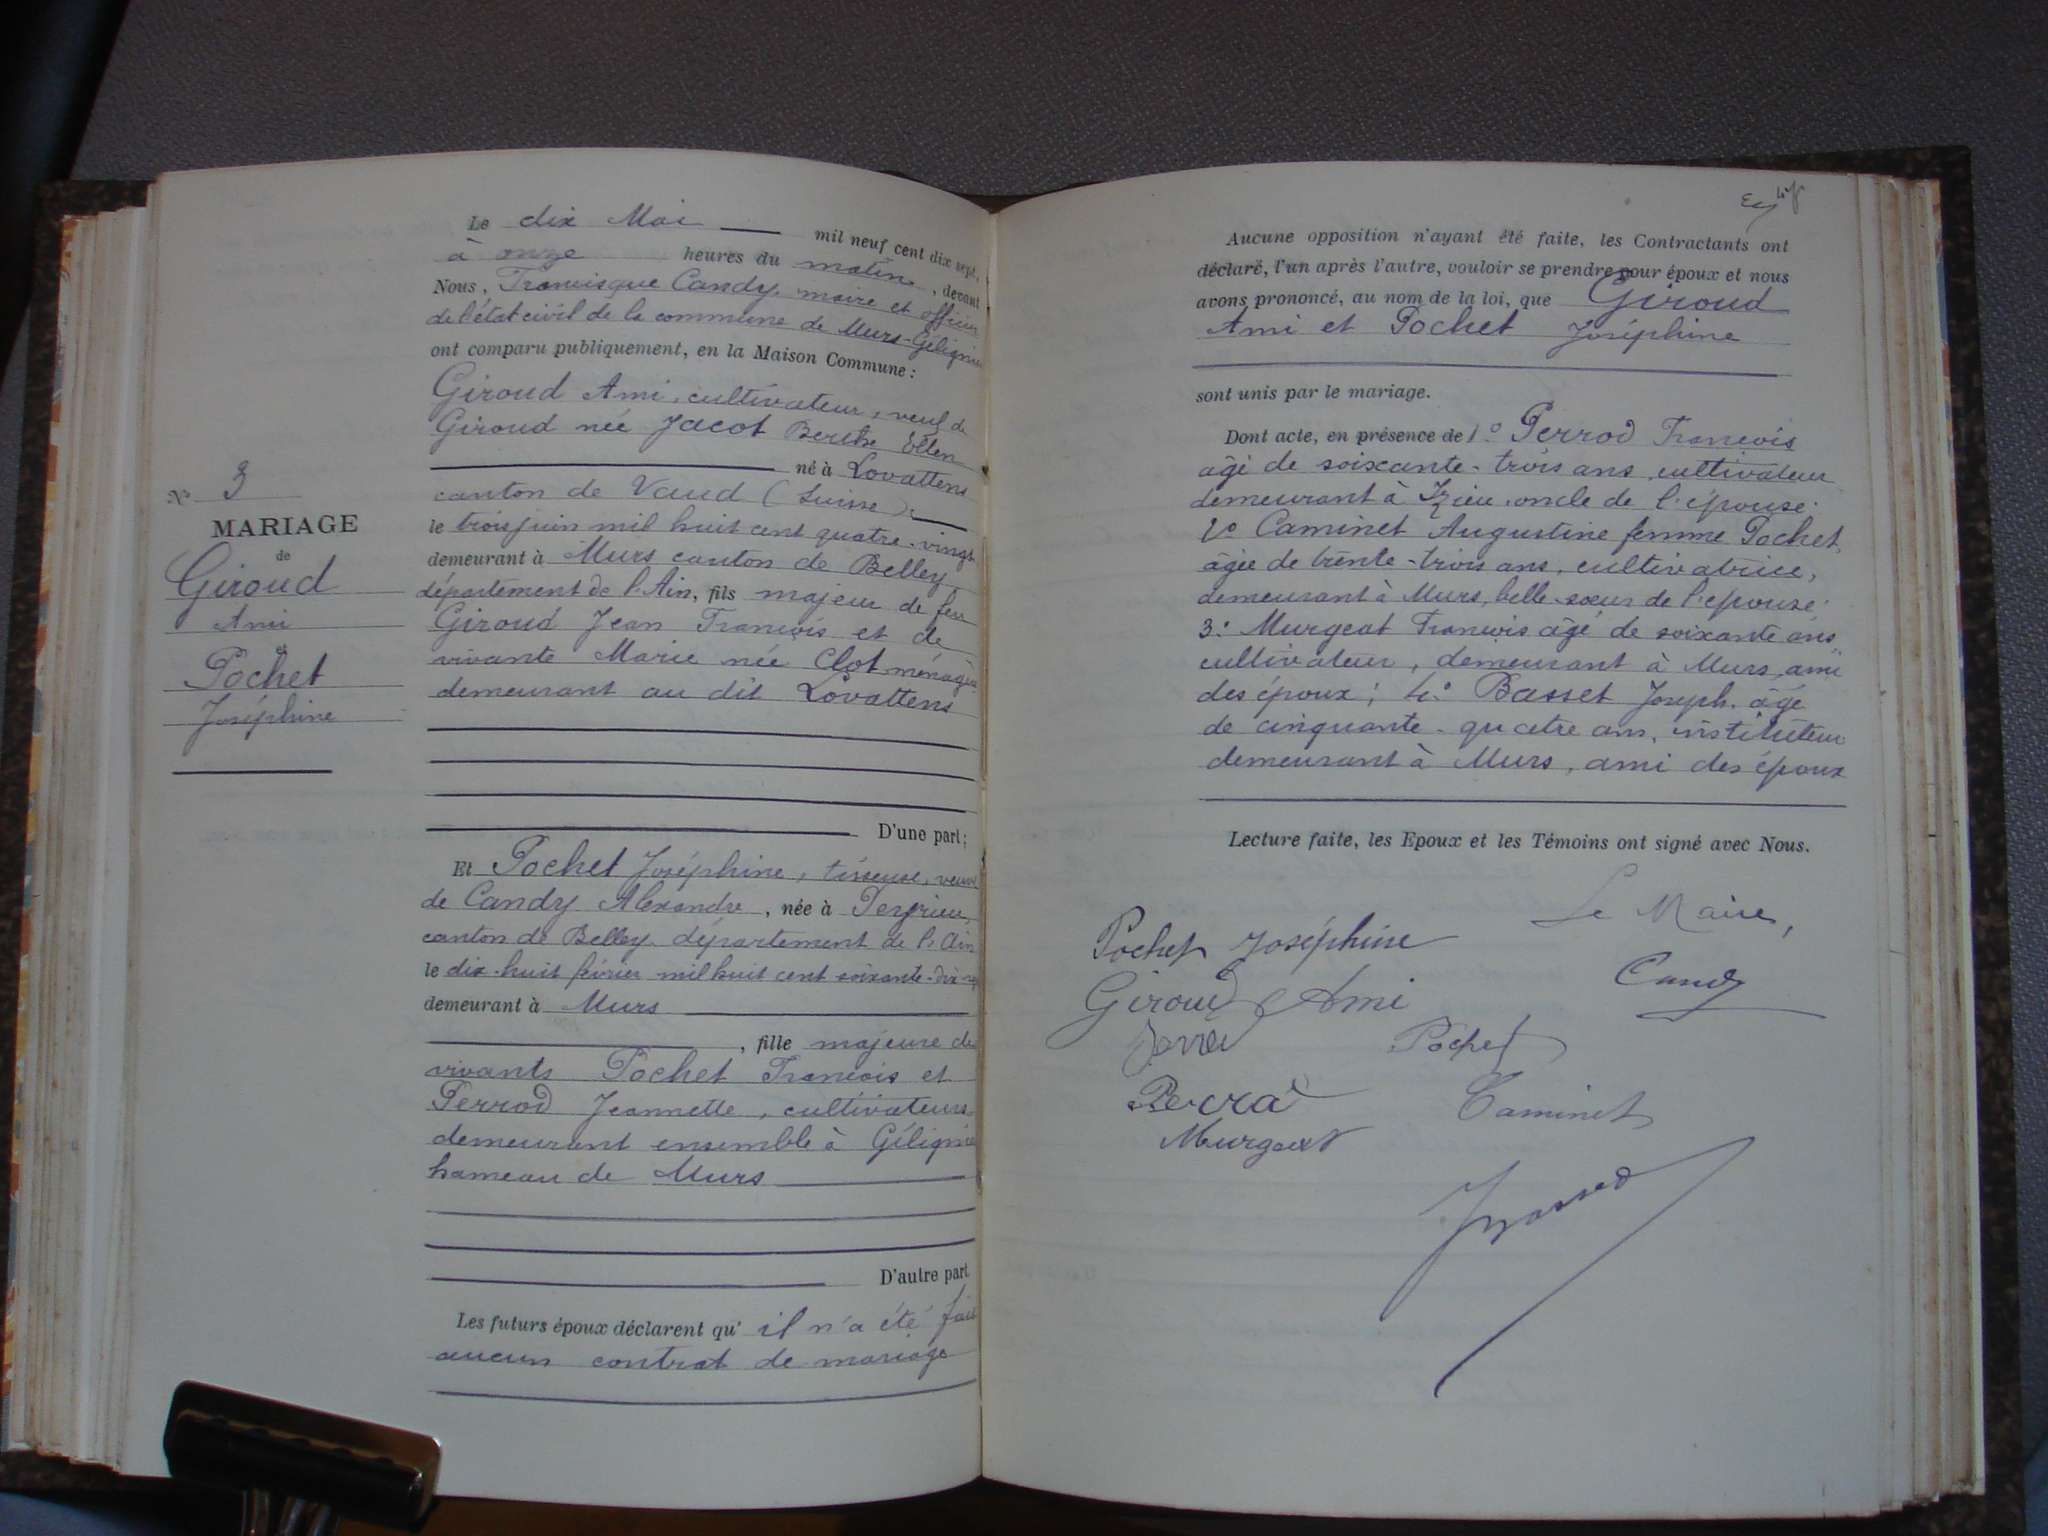 N° 3
MARIAGE
de
Giroud
Ami
&
Pochet
Joséphine
Le dix Mai mil neuf cent dix sept,
à onze heures du matin, devant
Nous, Francisque Candy, maire et officier
de l'état civil de la commune de Murs-Gélignieux
ont comparu publiquement, en la Maison Commune :
Giroud Ami, cultivateur, veuf de
Giroud née Jacot Berthe Ellen
né à Lovattens
canton de Vaud (Suisse)
le trois juin mil huit cent quatre-vingt
demeurant à Murs canton de Belley
département de l'Ain, fils majeur de feu
Giroud Jean François et de
vivante Marie née Clot ménagère
demeurant au dit Lovattens
D'une part;
Et Pochet Joséphine, tisseuse, veuve
de Candy Alexandre, née à Peyrieu,
canton de Belley département de l'Ain
le dix-huit février mil huit cent soixante-dix-
demeurant à Murs
, fille majeure de
vivants Pochet François et
Perrod Jeannette, cultivateurs
demeurant ensemble à Gélignieux
hameau de Murs
D'autre part.
Les futurs époux déclarent qu' il n'a été fait
aucun contrat de mariage
Aucune opposition n'ayant été faite, les Contractants ont
déclaré, l'un après l'autre, vouloir se prendre pour époux et nous
avons prononcé, au nom de la loi, que Giroud
Ami et Pochet Joséphine
sont unis par le mariage.
Dont acte, en présence de 1° Perrod François
âgé de soixante-trois ans, cultivateur
demeurant à Izieu, oncle de l'épouse;
2° Caminet Augustine femme Pochet,
âgée de trente-trois ans, cultivatrice,
demeurant à Murs, belle-sœur de l'épouse;
3° Murgeat François âgé de soixante ans
cultivateur, demeurant à Murs, ami
des époux; 4° Basset Joseph, âgé
de cinquante-quatre ans, instituteur
demeurant à Murs, ami des époux
Lecture faite, les Epoux et les Témoins ont signé avec Nous.
Le Maire,
Pochet Joséphine
Candy
Giroud Ami
Pochet
Caminet
Murgeat
JBasset